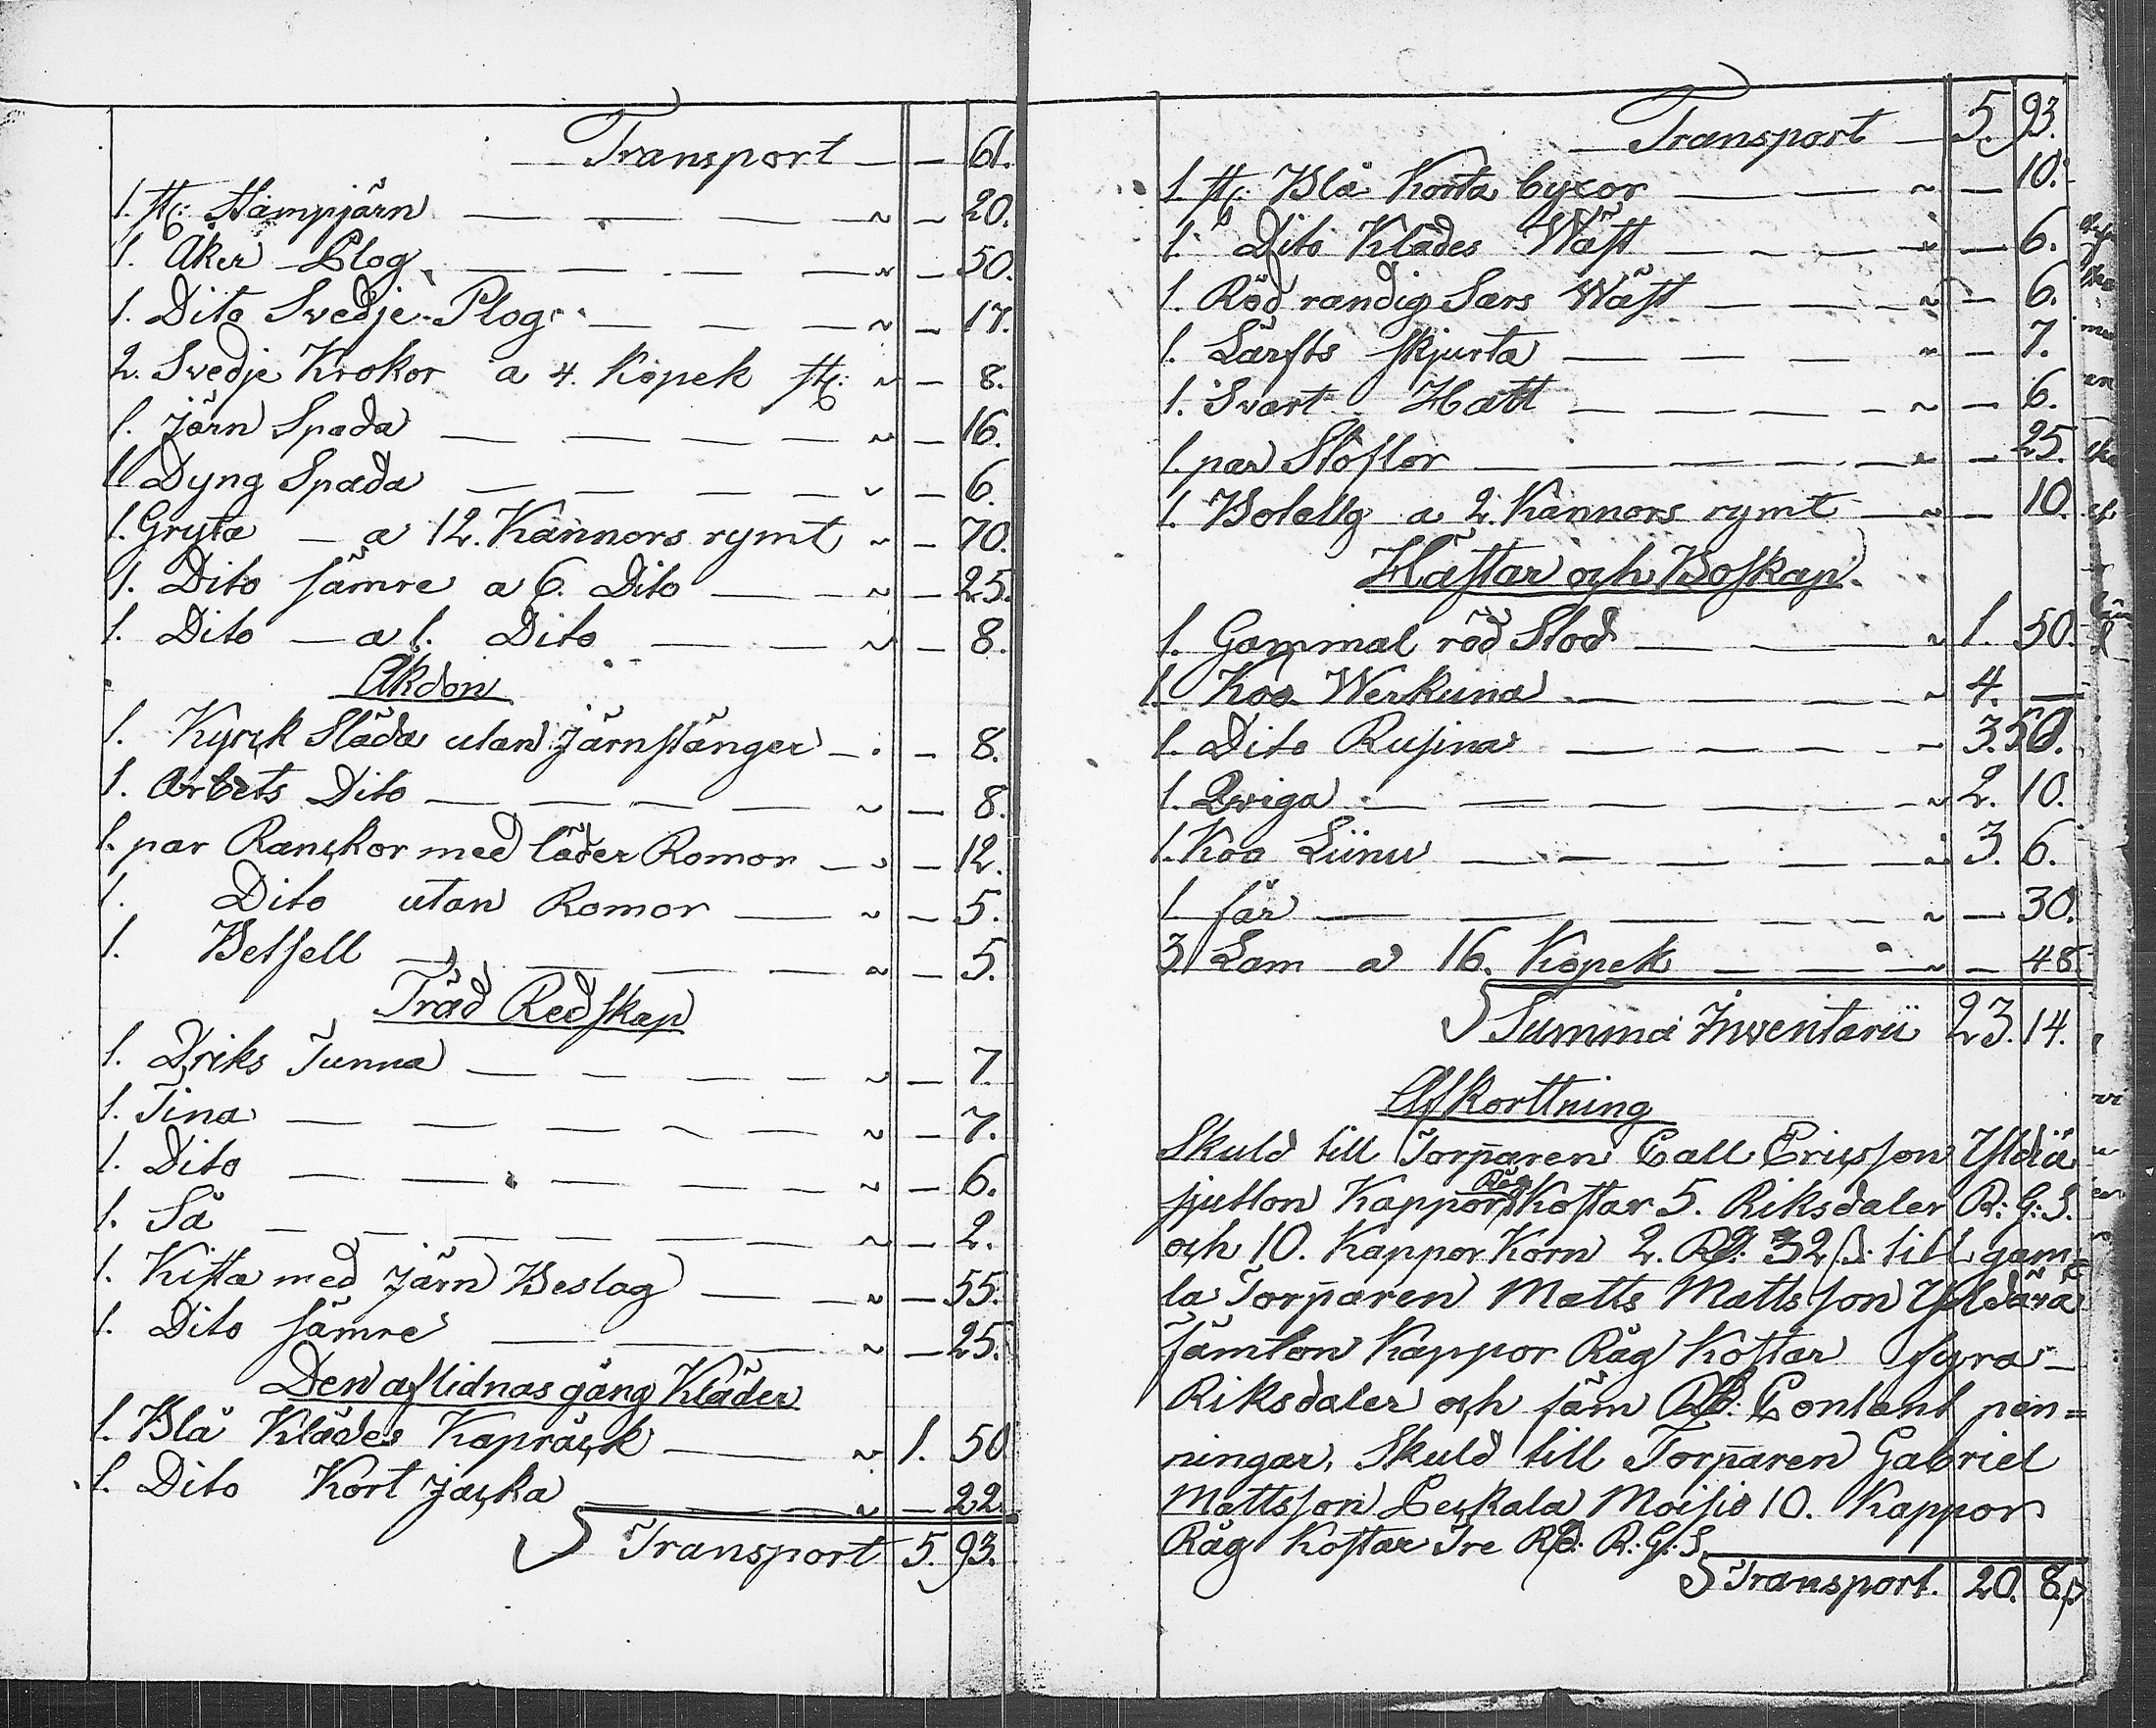 Transport — — 61.
1. st: Stämpjärn — — — ~ — 20.
1. Åker Plog — — — — ~ — 50.
1. Dito Svedje Plog — — — ~ — 17.
2. Svedje Krokor a 4. Kopek st: ~ — 8.
1. Järn Spada — — — — ~ — 16.
1 Dyng Spada — — — — ~ — 6.
1. Gryta — a 12. Kannors rymt ~ — 70.
1. Dito sämre a 6. Dito — — ~ — 25.
1. Dito — a 1. Dito — — ~ — 8.
Åkdon
1. Kyrck Släda utan järnstänger — . — 8.
1. Arbets Dito — — — — ~ — 8.
1. par Ranckor med läder Romor — ~ — 12.
1. Dito utan Romor — — ~ — 5.
1. Betsell — — — — ~ — 5.
Träd Redskap
1. Driks Tunna — — — — ~ — 7
1. Tina — — — — — ~ — 7.
1. Dito — — — — — ~ — 6.
1. Så — — — — — ~ — 2.
1. Kista med järn Beslag — — ~ — 55.
1. Dito sämre — — — ~ — 25.
Den aflidnas gång Kläder
1. Blå Klädes Kapråck — — ~ 1. 50
1. Dito Kort jacka — — — ~ — 22.
Transport 5. 93.
Transport — 5. 93.
1. st: Blå Korta byxor — — ~ — 10.
1. Dito Klädes Wäst — — — ~ — 6.
1. Röd randig Sars Wäst — — ~ — 6.
1. Lärfts skjurta — — — ~ — 7.
1. Svart Hatt — — — ~ — 6.
1. par Stöflor — — — — ~ — 25.
1. Botellg a 2. Kannors rymt — ~ — 10.
Hästar och Boskap
1. Gammal röd Stod — — ~ 1. 50.
1. Koo Werkuna — — — ~ 4. —
1. Dito Rusina — — — ~ 3. 50.
1. Qwiga — — — — ~ 2. 10.
1. Koo Liinu — — — — ~ 3. 6.
1 får — — — — — ~ — 30.
3 Lam a 16. Kopek — — ~ — 48.
Summa Inventarii 23. 14.
Afkorttning
Skuld till Torparen Call Ericsson
sjutton Kappor Råg Kostar 5. Riksdaler R: G: S.
och 10. Kappor Korn 2. Rd: 32 ß: till gam=
la Torparen Matts Mattsson
fämton Kappor Råg Kostar fyra —
Riksdaler och fäm Rd: Contant pen=
ningar, Skuld till Torparen Gabriel
Mattsson Leckala Moisio 10. Kappor
Råg Kostar Tre Rd: R: G: S.
Transport. 20. 8.